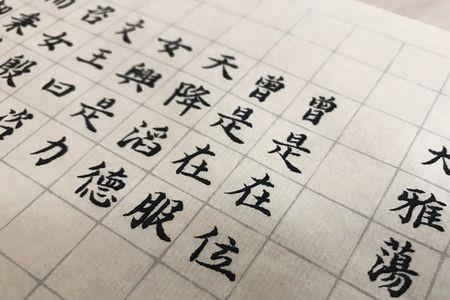 大雅蕩
曾是在位
曾是在服
天降滔德
女興是力
文王曰咨
咨女殷
而秉